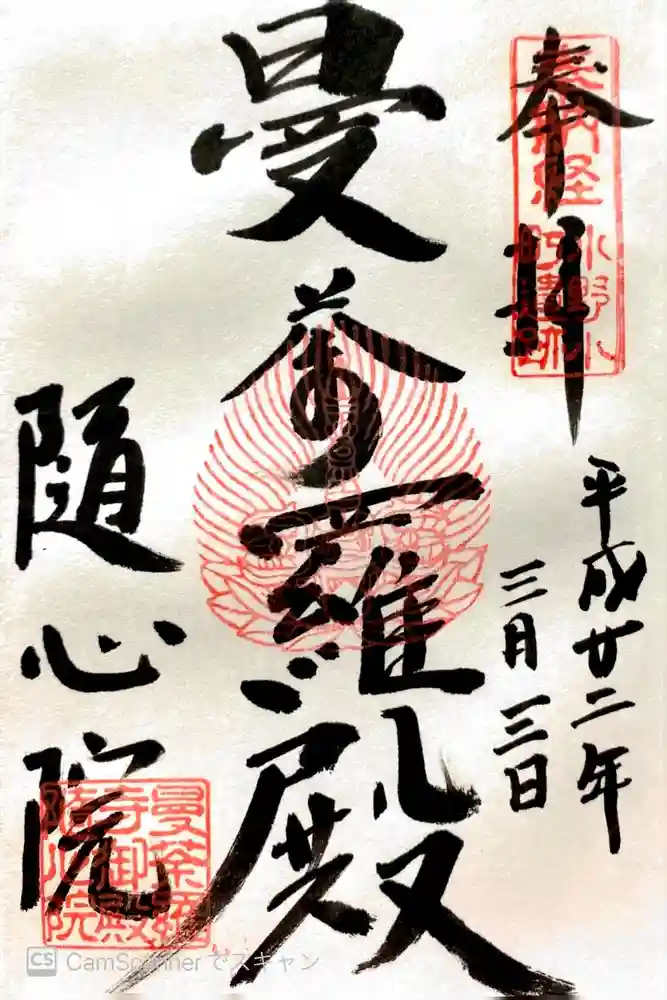 奉拝
奉納経
小野小
町遺跡
平成廿二年
三月三日
曼荼羅殿
随心院
曼荼羅
寺御殿
随心院
CS CamScanner でスキャン